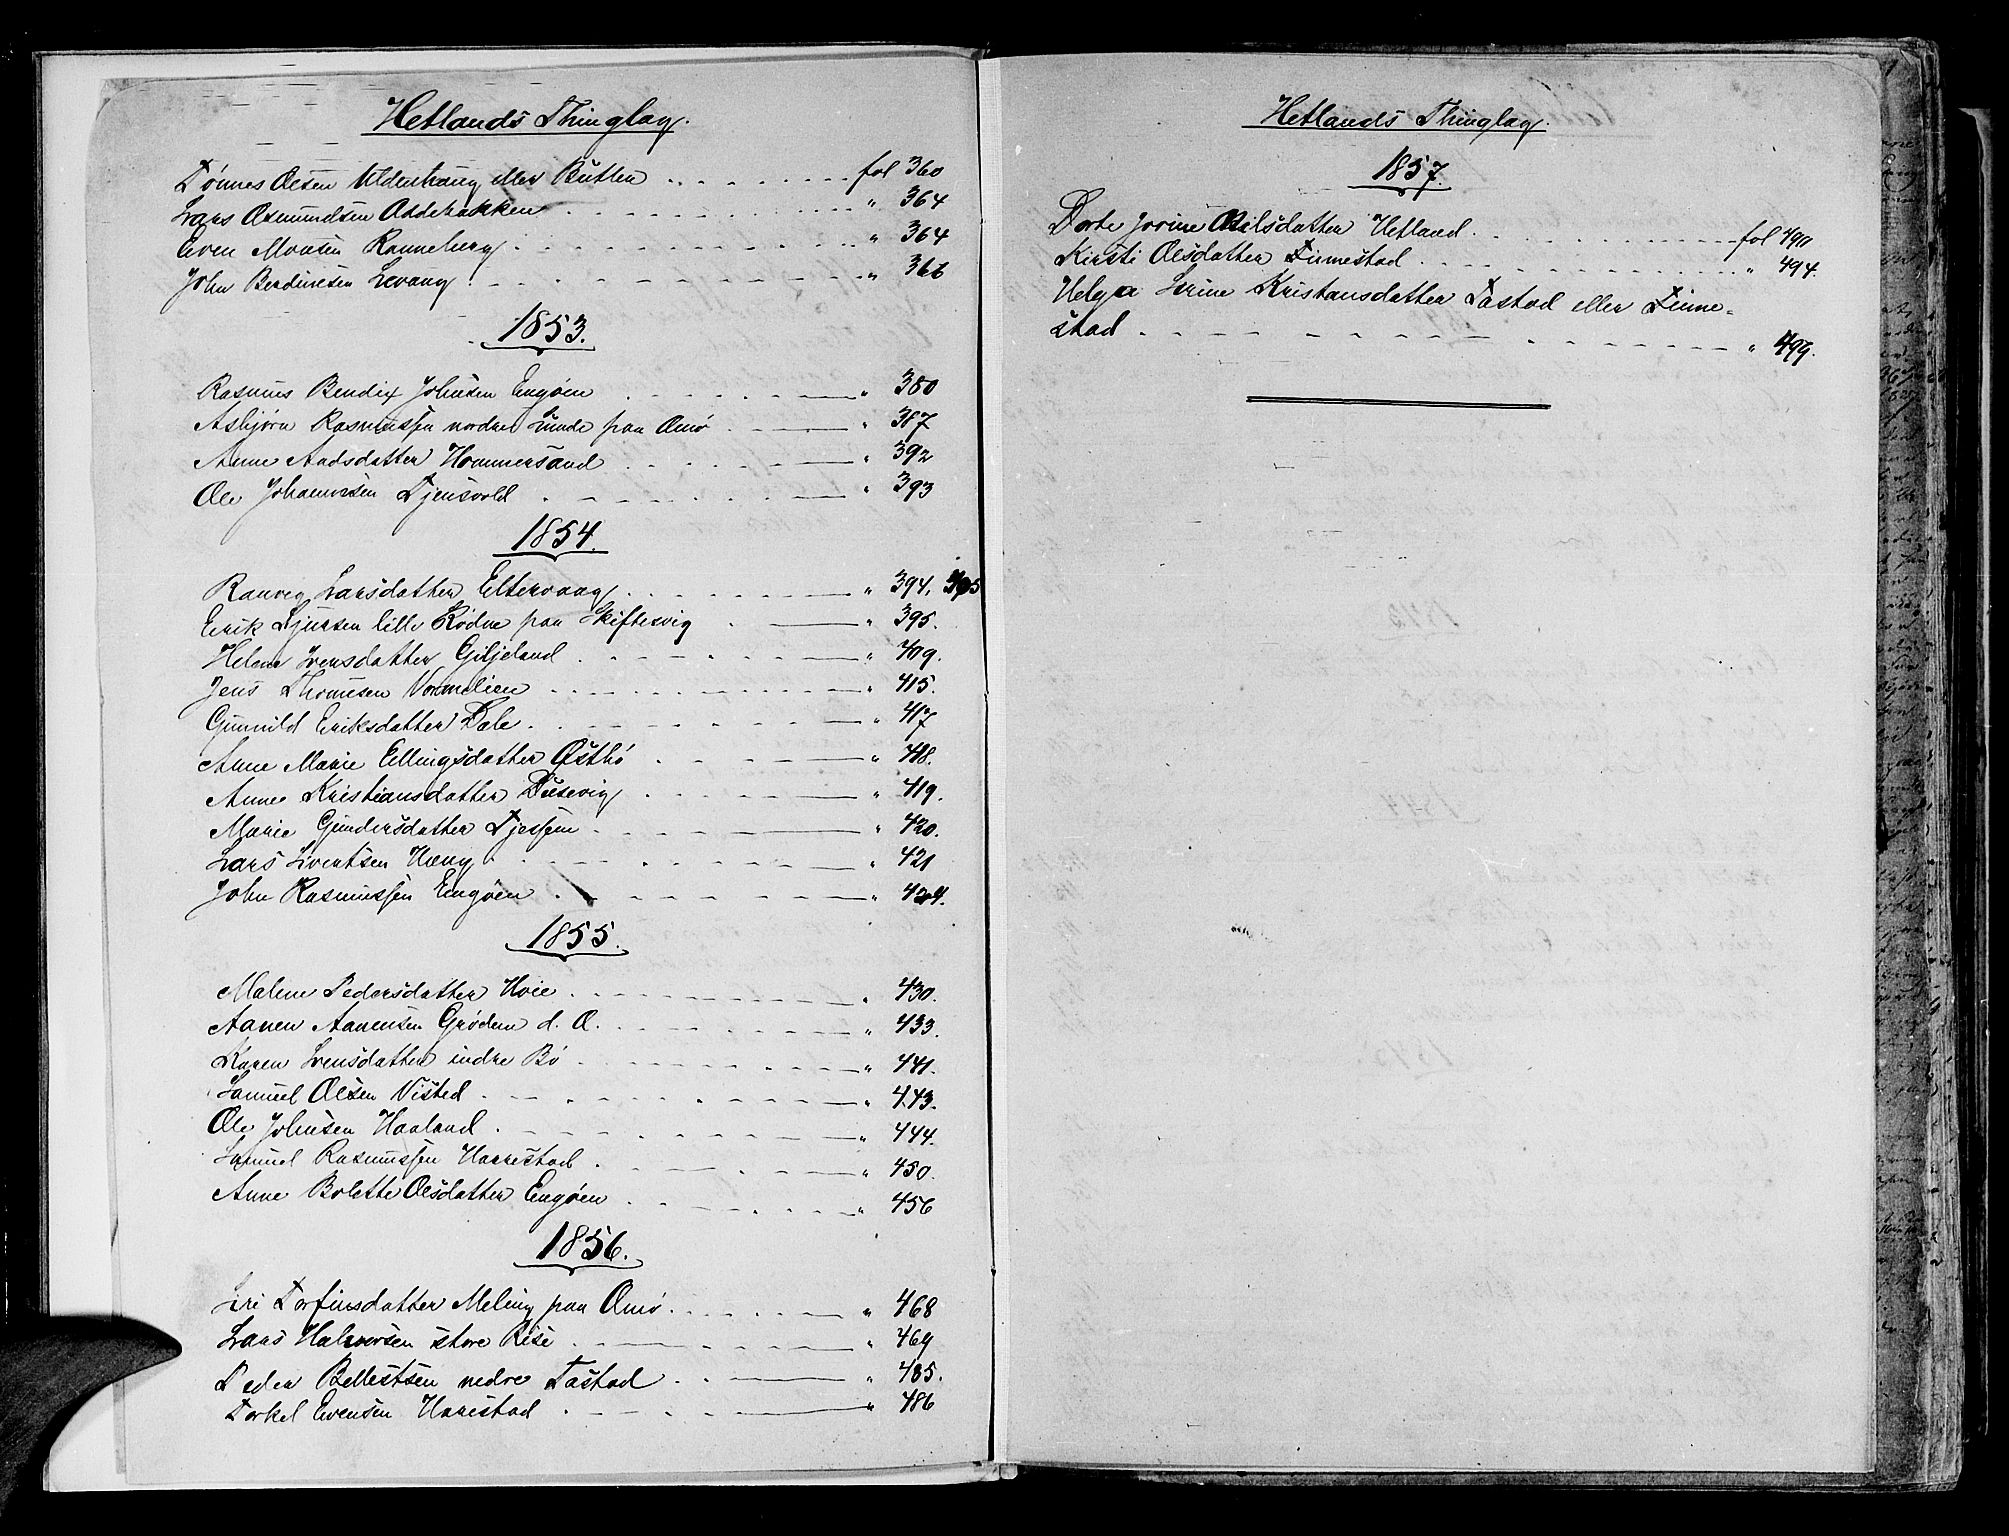 Hetlands Thinglag.
Tønnes Olsen Uldenhaug eller Butten fol 360
Lars Osmundsen Addebakken " 364
Even Monsen Ranneberg " 364
John Berdinesen Levang " 366
1853.
Rasmus Bendix Johnsen Engøen " 380
Asbjørn Rasmussen nordre Sunde paa Omø " 387
Anne Aadsdatter Hommersand " 392
Ole Johannesen Tjensvold " 393
1854.
Ranveg Larsdatter Eltervaag " 394, 405
Erik Sjursen lille Rødne paa Skiftesvig " 395.
Helene Svensdatter Giljeland " 409.
Jens Thomsen Vormelien " 415.
Gunnild Eriksdatter Dale " 417
Anne Marie Ellingsdatter Østhó " 418.
Anne Kristiansdatter Dusevig " 419.
Marie Gundersdatter Tjessem " 420.
Lars Sivertsen Haug " 421
John Rasmussen Engøen " 424.
1855.
Malene Pedersdatter Hoie " 430.
Aanen Aanensen Grødem d. O. " 433.
Karen Svensdatter indre Bø " 441.
Samuel Olsen Visted " 443.
Ole Johnsen Haaland " 444.
Samuel Rasmussen Harestad " 450.
Anne Bolette Olsdatter Engøen " 456
1856.
Siri Torfinsdatter Meling paa Omø " 468
Lars Halvorsen store Rese " 469
Peder Bellestsen nedre Tastad " 485.
Torkel Evensen Harestad " 486
Hetlands Thinglag.
1857.
Dorte Jorine Nilsdatter Hetland fol 490
Kirsti Olsdatter Finnestad " 494.
Helga Serine Kristansdatter Tastad eller Finne=
stad " 499.